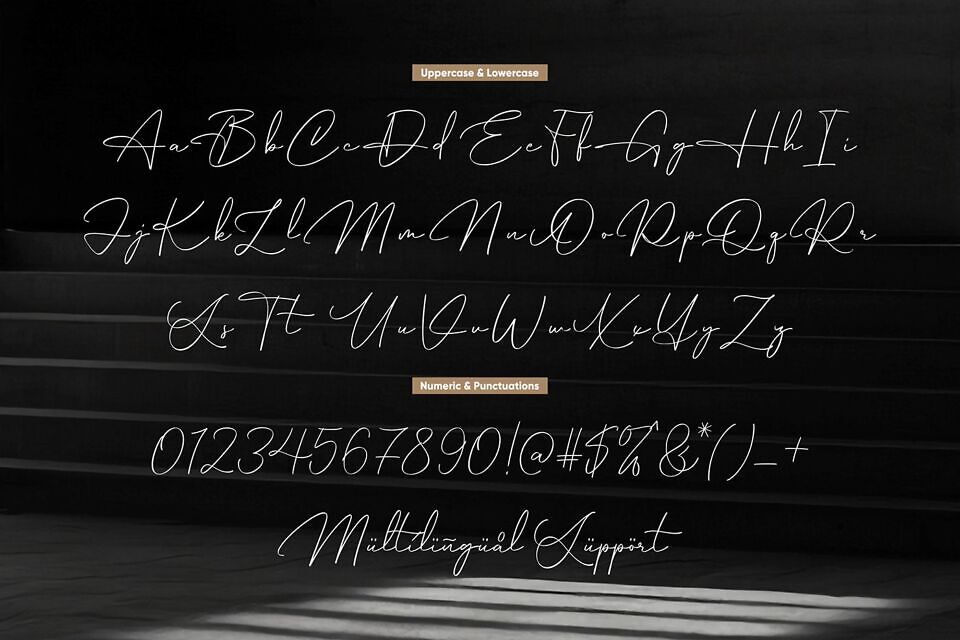 Uppercase & Lowercase
AaBbCcDdEeFfGgHhIi
JjKkLlMmNnOoPpQqRr
SsTtUuVvWwXxYyZz
Numeric & Punctuations
01234567890!@#$%&*()_+
Mültilïñgüål Süppört